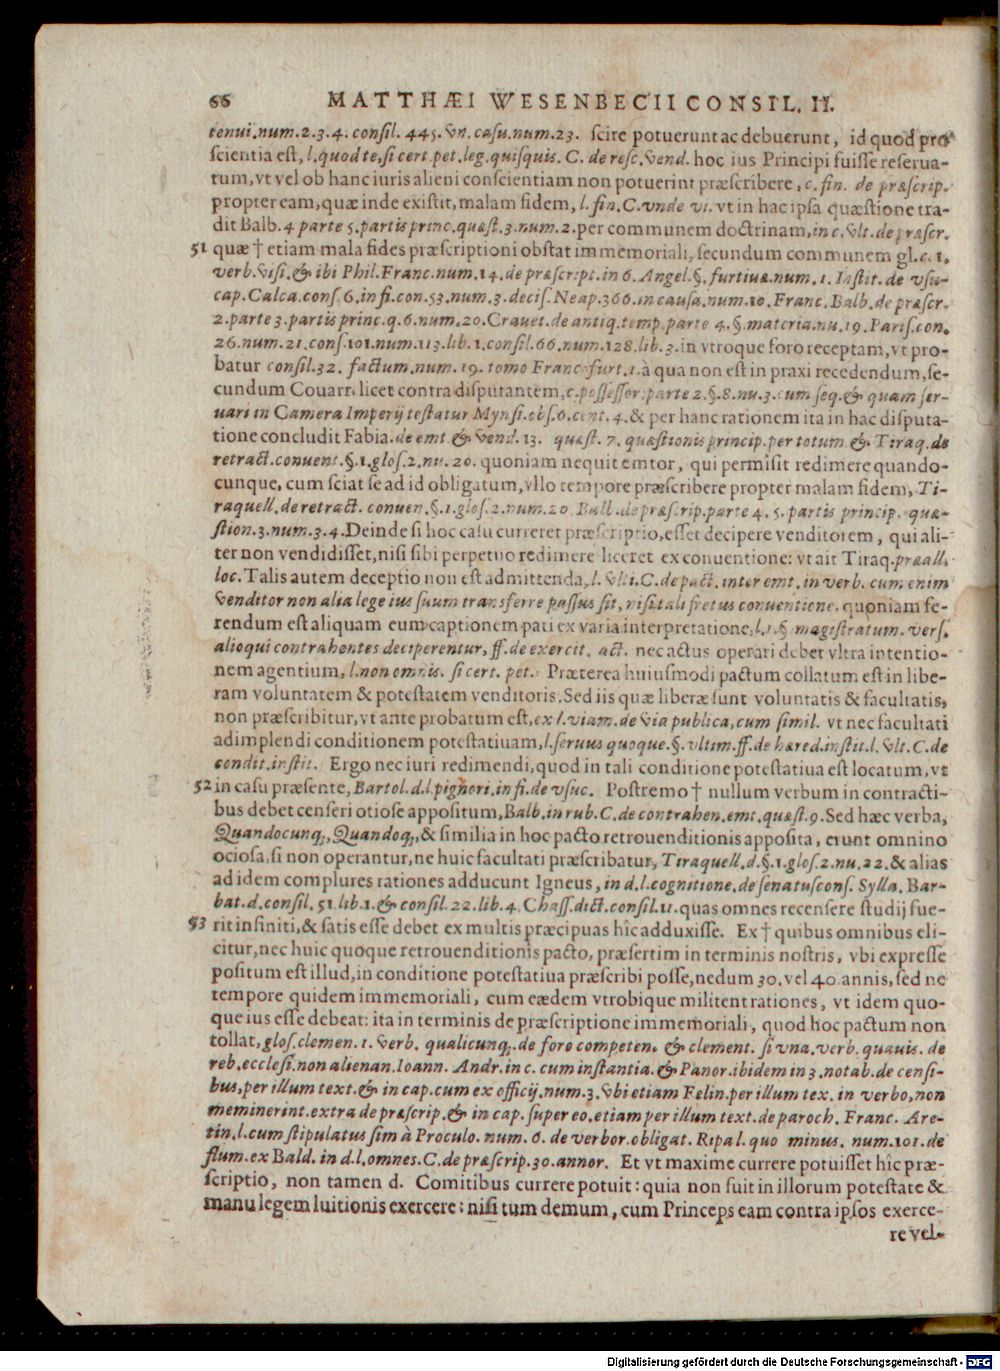 66 MATTHÆI WESENBECII CONSIL. II.
tenui.num.2.3.4. consil. 445. vn. casu.num.23. scire potuerunt ac debuerunt, id quod pro
scientia est, l.quod te, si cert.pet.leg.quisquis. C. de resc.vend. hoc ius Principi fuisse reserua-
tum, vt vel ob hanc iuris alieni conscientiam non potuerint præscribere, c. fin. de præscrip.
propter eam, quæ inde existit, malam fidem, l. fin. C. vnde vi. vt in hac ipsa quæstione tra-
dit Balb. 4 parte 5. partis princ. quæst. 3. num. 2. per communem doctrinam, in c. vlt. de præscr.
51 quæ † etiam mala fides præscriptioni obstat immemoriali, secundum communem gl. c. 1.
verb. visi. & ibi Phil. Franc. num. 14. de præscript. in 6. Angel. §. furtiuæ. num. 1. Instit. de vsu-
cap. Calca. cons. 6. in fi. con. 53. num. 3. decis. Neap. 366. in causa. num. 10. Franc. Balb. de præscr.
2. parte 3. partis princ. q. 6. num. 20. Crauet. de antiq. temp. parte 4. §. materia. nu. 19. Paris. con.
26. num. 21. cons. 101. num. 113. lib. 1. consil. 66. num. 128. lib. 3. in vtroque foro receptam, vt pro-
batur consil. 32. factum. num. 19. tomo Franc. furt. 1. à qua non est in praxi recedendum, se-
cundum Couarr. licet contra disputantem, c. possessor. parte 2. §. 8. nu. 3. cum seq. & quam ser-
uari in Camera Imperij testatur Mynsi. obs. 6. cent. 4. & per hanc rationem ita in hac disputa-
tione concludit Fabia. de emt. & vend. 13. quæst. 7. quæstionis princip. per totum & Tiraq. de
retract. conuent. §. 1. glos. 2. nu. 20. quoniam nequit emtor, qui permisit redimere quando-
cunque, cum sciat se ad id obligatum, vllo tempore præscribere propter malam fidem, Ti-
raquell. de retract. conuen. §. 1. glos. 2. num. 20. Balb. de præscrip. parte 4. 5. partis princip. quæ-
stion. 3. num. 3. 4. Deinde si hoc casu curreret præscriptio, esset decipere venditorem, qui ali-
ter non vendidisset, nisi sibi perpetuo redimere liceret ex conuentione: vt ait Tiraq. præall.
loc. Talis autem deceptio non est admittenda, l. vlti. C. de pact. inter emt. in verb. cum enim
venditor non alia lege ius suum transferre passus sit, nisi tali fretus conuentione. quoniam fe-
rendum est aliquam eum captionem pati ex varia interpretatione, l. 1. § magistratum. vers.
alioqui contrahentes deciperentur, ff. de exercit. act. nec actus operari debet vltra intentio-
nem agentium, l. non omnis. si cert. pet. Præterea huiusmodi pactum collatum est in libe-
ram voluntatem & potestatem venditoris. Sed iis quæ liberæ sunt voluntatis & facultatis,
non præscribitur, vt ante probatum est, ex l. viam. de via publica, cum simil. vt nec facultati
adimplendi conditionem potestatiuam, l. seruus quoque. §. vltim. ff. de hæred. instit. l. vlt. C. de
condit. instit. Ergo nec iuri redimendi, quod in tali conditione potestatiua est locatum, vt
52 in casu præsente, Bartol. d. l. pignori. in fi. de vsuc. Postremo † nullum verbum in contracti-
bus debet censeri otiose appositum, Balb. in rub. C. de contrahen. emt. quæst. 9. Sed hæc verba,
Quandocunq;, Quandoq;, & similia in hoc pacto retrouenditionis apposita, erunt omnino
ociosa, si non operantur, ne huic facultati præscribatur, Tiraquell. d. §. 1. glos. 2. nu. 22. & alias
ad idem complures rationes adducunt Igneus, in d. l. cognitione. de senatuscons. Sylla. Bar-
bat. d. consil. 51. lib. 1. & consil. 22. lib. 4. Chass. dict. consil. 11. quas omnes recensere studij fue-
53 rit infiniti, & satis esse debet ex multis præcipuas hic adduxisse. Ex † quibus omnibus eli-
citur, nec huic quoque retrouenditionis pacto, præsertim in terminis nostris, vbi expresse
positum est illud, in conditione potestatiua præscribi posse, nedum 30. vel 40 annis, sed ne
tempore quidem immemoriali, cum eædem vtrobique militent rationes, vt idem quo-
que ius esse debeat: ita in terminis de præscriptione immemoriali, quod hoc pactum non
tollat, glos. clemen. 1. verb. qualicunq;. de foro competen. & clement. si vna. verb. quauis. de
reb. ecclesi. non alienan. Ioann. Andr. in c. cum instantia. & Panor. ibidem in 3. notab. de censi-
bus, per illum text. & in cap. cum ex officij. num. 3. vbi etiam Felin. per illum tex. in verbo, non
meminerint. extra de præscrip. & in cap. super eo. etiam per illum text. de paroch. Franc. Are-
tin. l. cum stipulatus sim à Proculo. num. 6. de verbor. obligat. Ripa l. quo minus. num. 101. de
flum. ex Bald. in d. l. omnes. C. de præscrip. 30. annor. Et vt maxime currere potuisset hîc præ-
scriptio, non tamen d. Comitibus currere potuit: quia non fuit in illorum potestate &
manu legem luitionis exercere: nisi tum demum, cum Princeps eam contra ipsos exerce-
re vel-
Digitalisierung gefördert durch die Deutsche Forschungsgemeinschaft - DFG